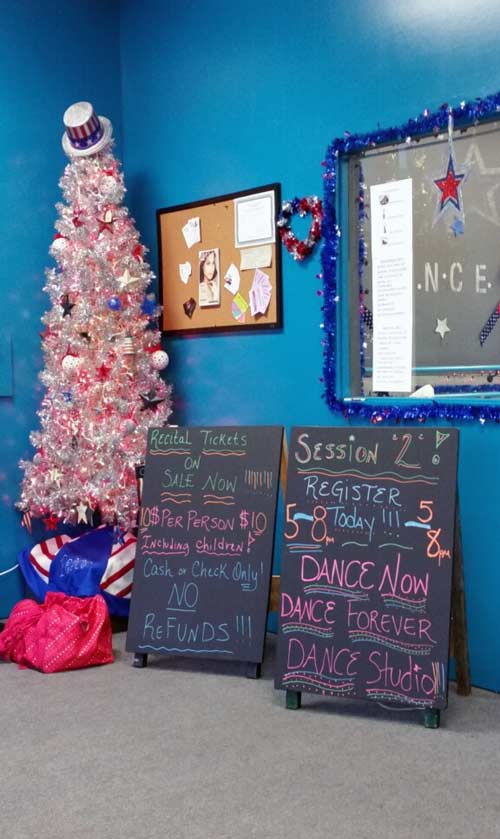 .N.C.E.
Recital Tickets
ON
SALE NOW !!!!!!!!
10$ PER PERSON $10
Including children!
Cash or Check Only!
NO
ReFUNDS!!!
SESSION "2" !
REGISTER
5-8pm Today!!! 5-8pm
DANCE NOW
DANCE FOREVER
DANCE Studio!!!